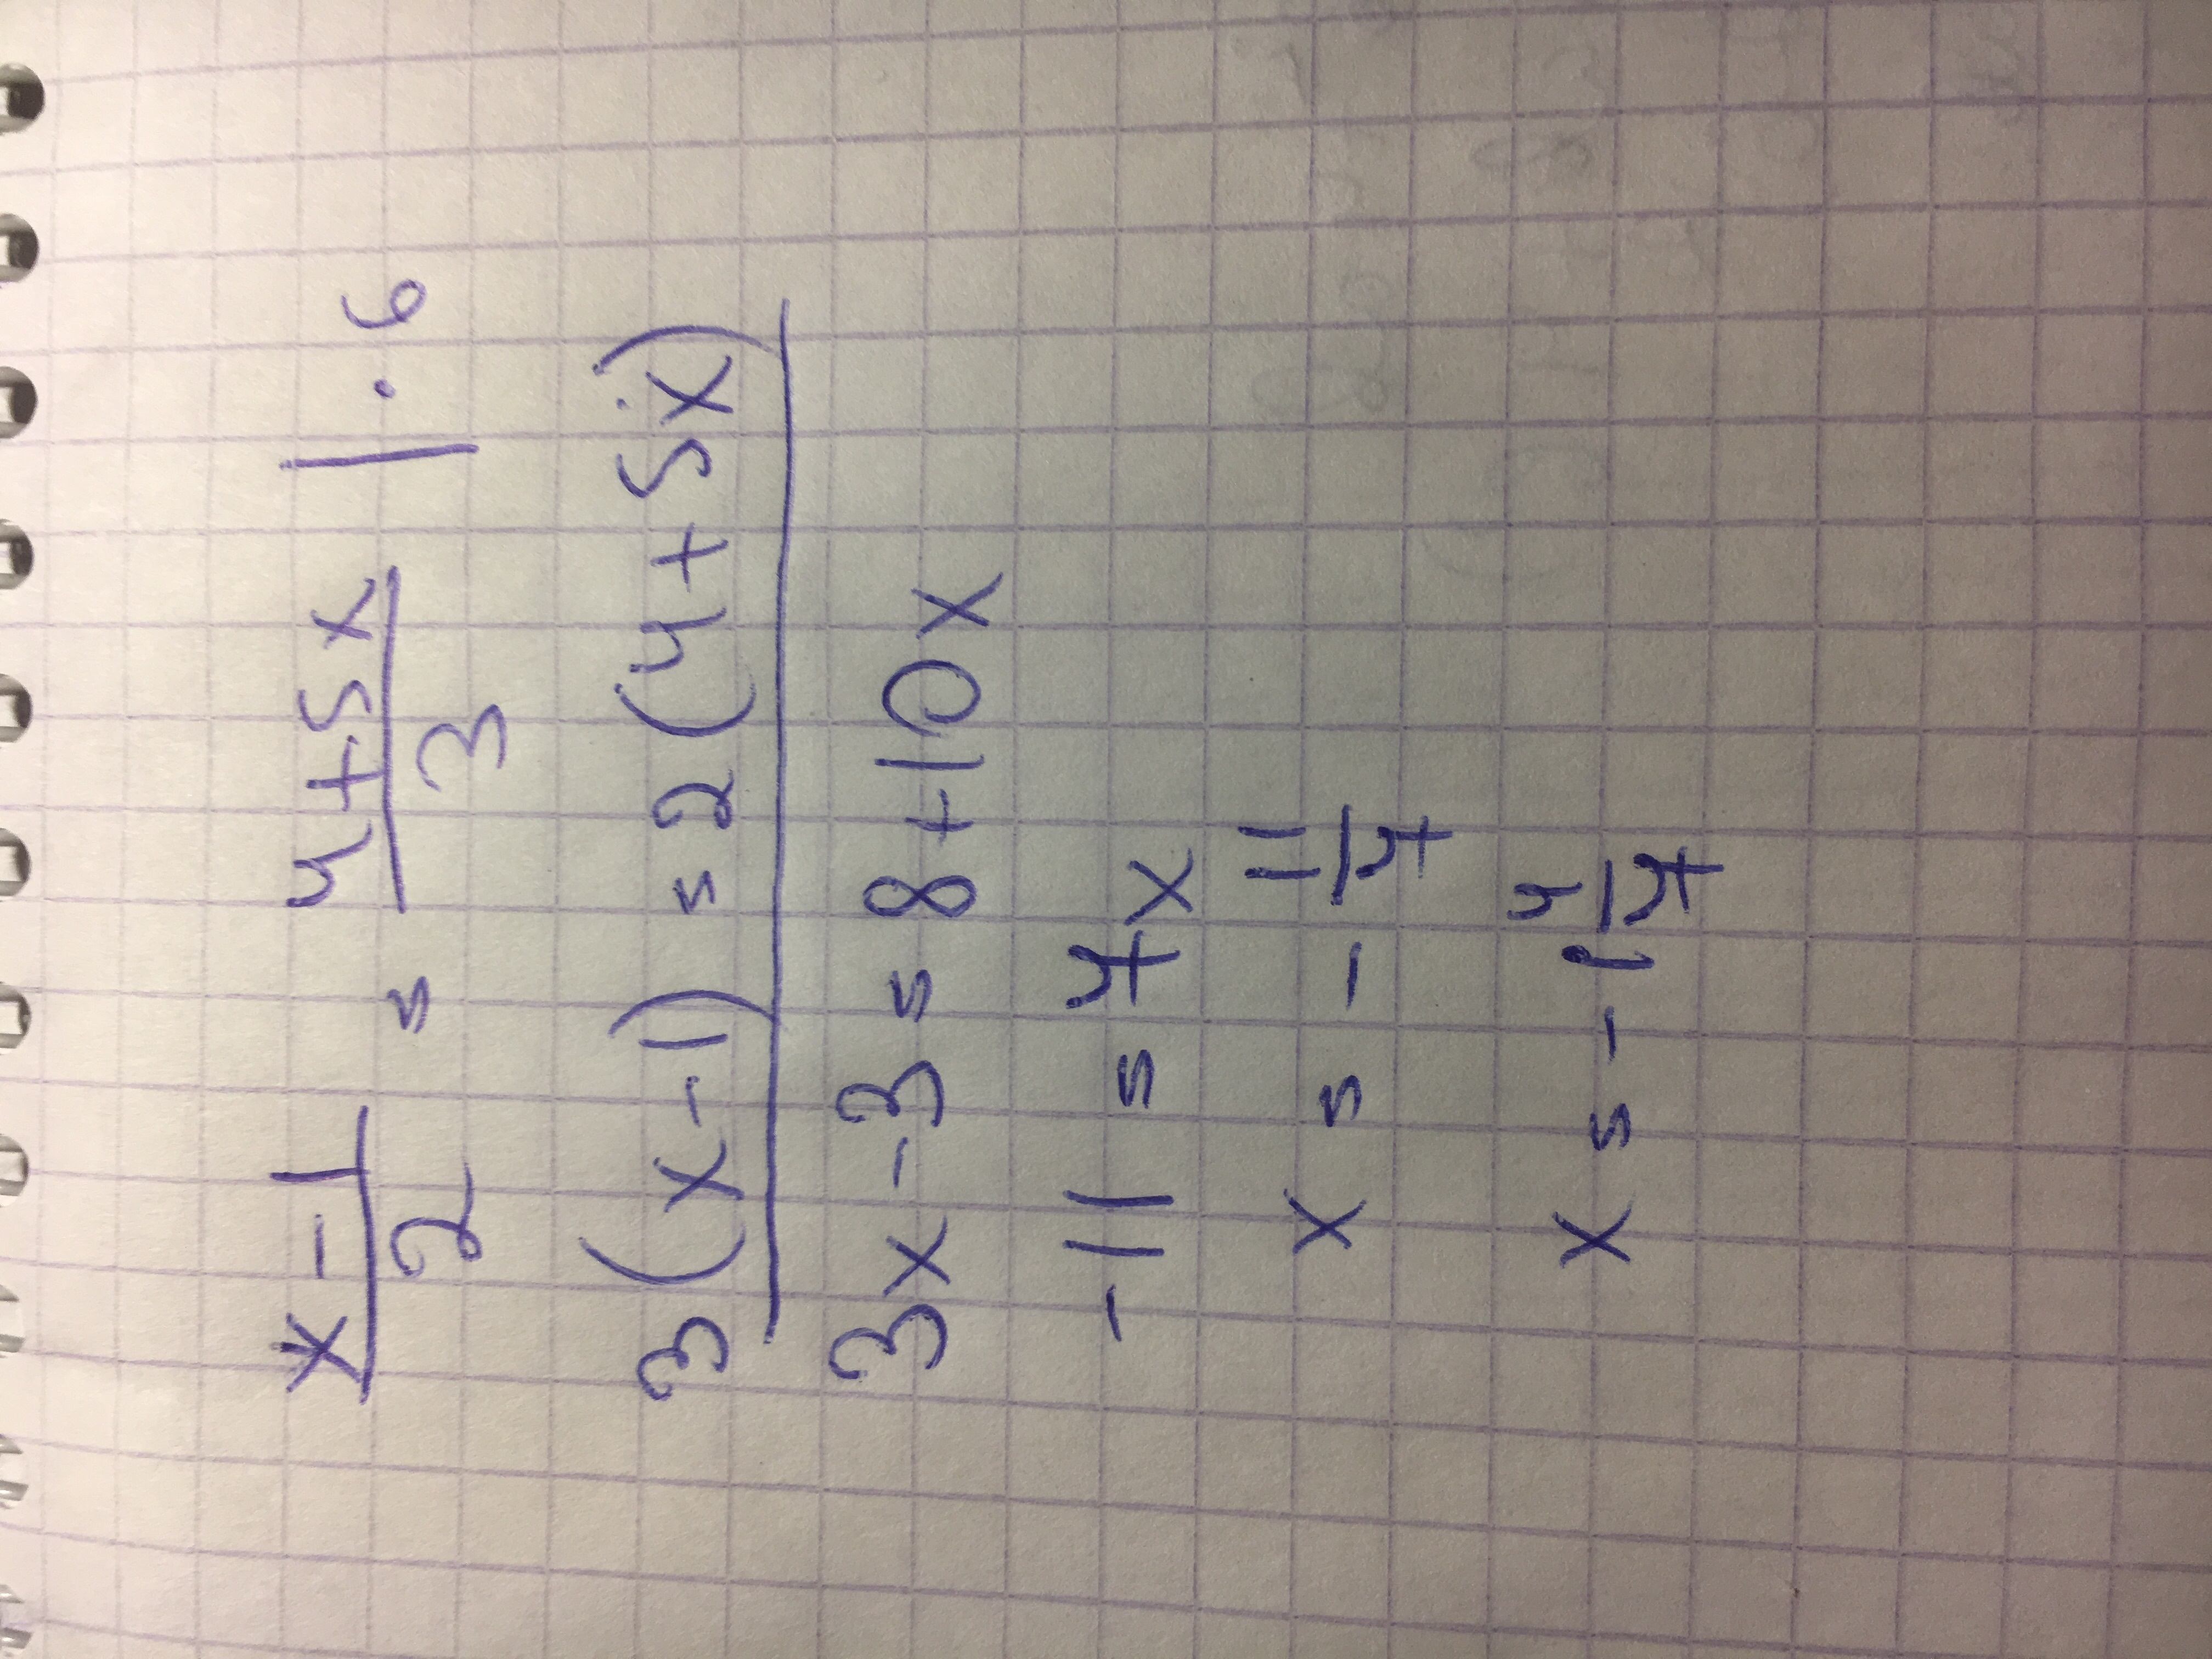 x-1/2 = 4+5x/3 | · 6
3(x-1) = 2(4+5x)
3x-3 = 8+10x
-11 = 7x
x = - 11/7
x = -1 4/7